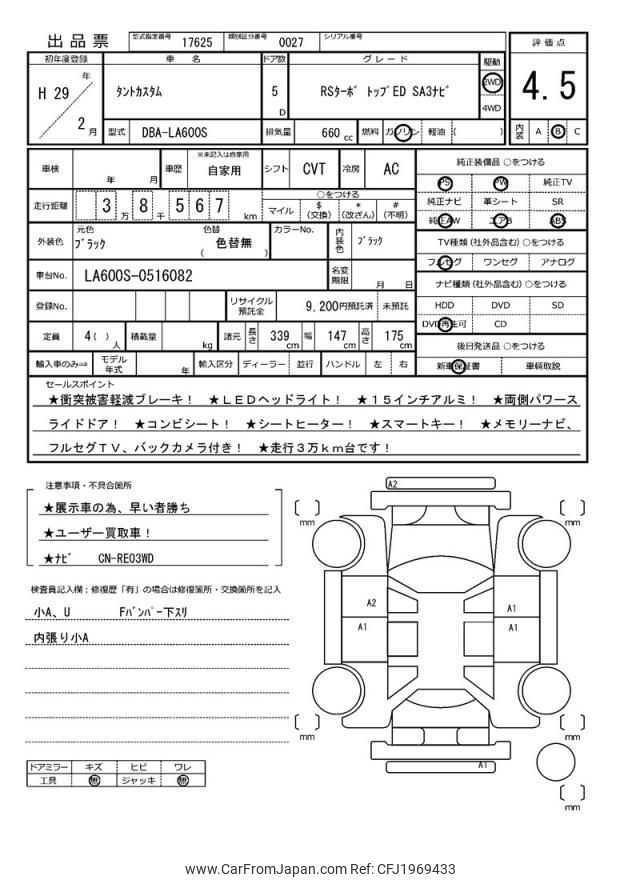 出品票 型式指定番号 17625 類別区分番号 0027 シリアル番号
初年度登録 車名 ドア数 グレード 駆動 評価点
H 29 年 2 月 タントカスタム 5 D RSターボ トップED SA3ナビ 2WD 4WD 4.5
型式 DBA-LA600S 排気量 660 cc 燃料 ガソリン 軽油 ( ) 内装 A B C
車検 年 月 車歴 ※未記入は自家用 自家用 シフト CVT 冷房 AC 純正装備品 ○をつける
PS PW 純正TV
走行距離 3 万 8 千 5 6 7 km ○をつける マイル $ (交換) * (改ざん) # (不明) 純正ナビ 革シート SR
純正AW エアB ABS
外装色 元色 ブラック 色替 色替無 ( ) カラーNo. 内装色 ブラック TV種類 (社外品含む) ○をつける
フルセグ ワンセグ アナログ
車台No. LA600S-0516082 名変期限 月 日 ナビ種類 (社外品含む) ○をつける
登録No. リサイクル預託金 9,200円預託済 未預託 HDD DVD SD
DVD再生可 CD
定員 4( ) 人 積載量 kg 諸元 長さ 339 cm 幅 147 cm 高さ 175 cm 後日発送品 ○をつける
輸入車のみ⇒ モデル年式 年 輸入区分 ディーラー 並行 ハンドル 左 右 新車保証書 車輌取説
セールスポイント
★衝突被害軽減ブレーキ! ★LEDヘッドライト! ★15インチアルミ! ★両側パワース
ライドドア! ★コンビシート! ★シートヒーター! ★スマートキー! ★メモリーナビ、
フルセグTV、バックカメラ付き! ★走行3万km台です!
注意事項・不具合箇所
★展示車の為、早い者勝ち
★ユーザー買取車!
★ナビ CN-RE03WD
検査員記入欄:修復歴「有」の場合は修復箇所・交換箇所を記入
小A、U Fバンパー下スリ
内張り小A
ドアミラー キズ ヒビ ワレ
工具 無 ジャッキ 無
A2
[ ] mm [ ] mm
A2 A1
A1 A1
[ ] mm [ ] mm
A1
[ ] mm
www.CarFromJapan.com Ref: CFJ1969433